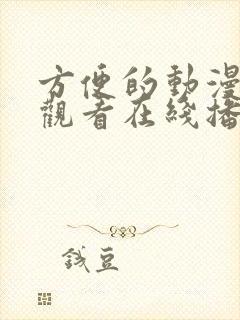 方便的動漫
觀看在綫播
錢豆